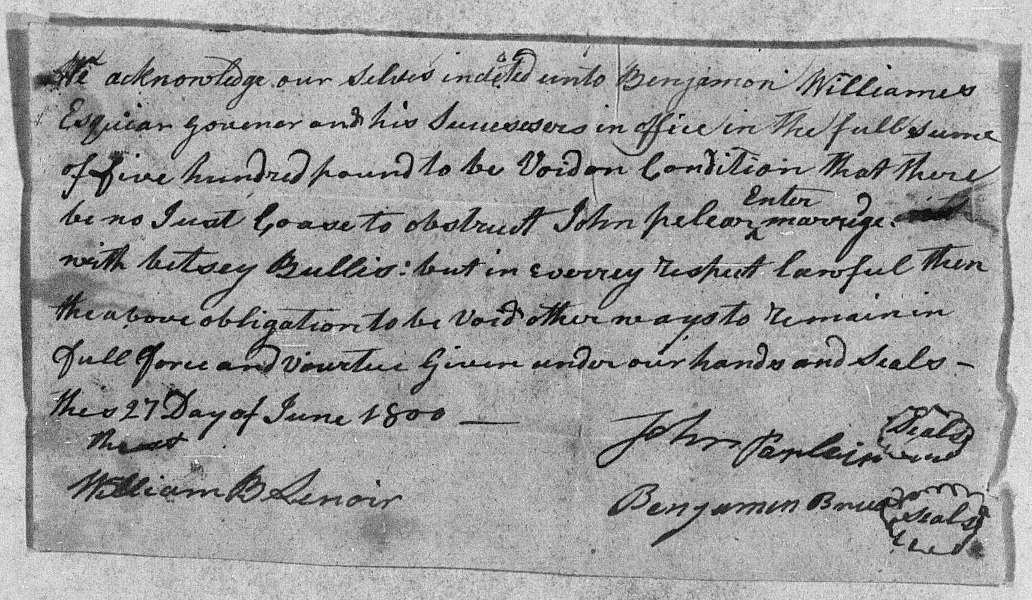 We acknowledge our Selves indeted unto Benjamon Williames
Esquiar Govener and his Sucessers in office in the full sume
of five hundred pound to be Void on Condition that there
be no Just Coase to obstruct John pelear Enter marrige
with betsey Bullis: but in everrey respect lawful then
the above obligation to be void other ways to remain in
full force and vourtue Given under our hands and Seals –
the 27 Day of June 1800 —
John
Seals
William B Lenoir
Benjamen
Seals